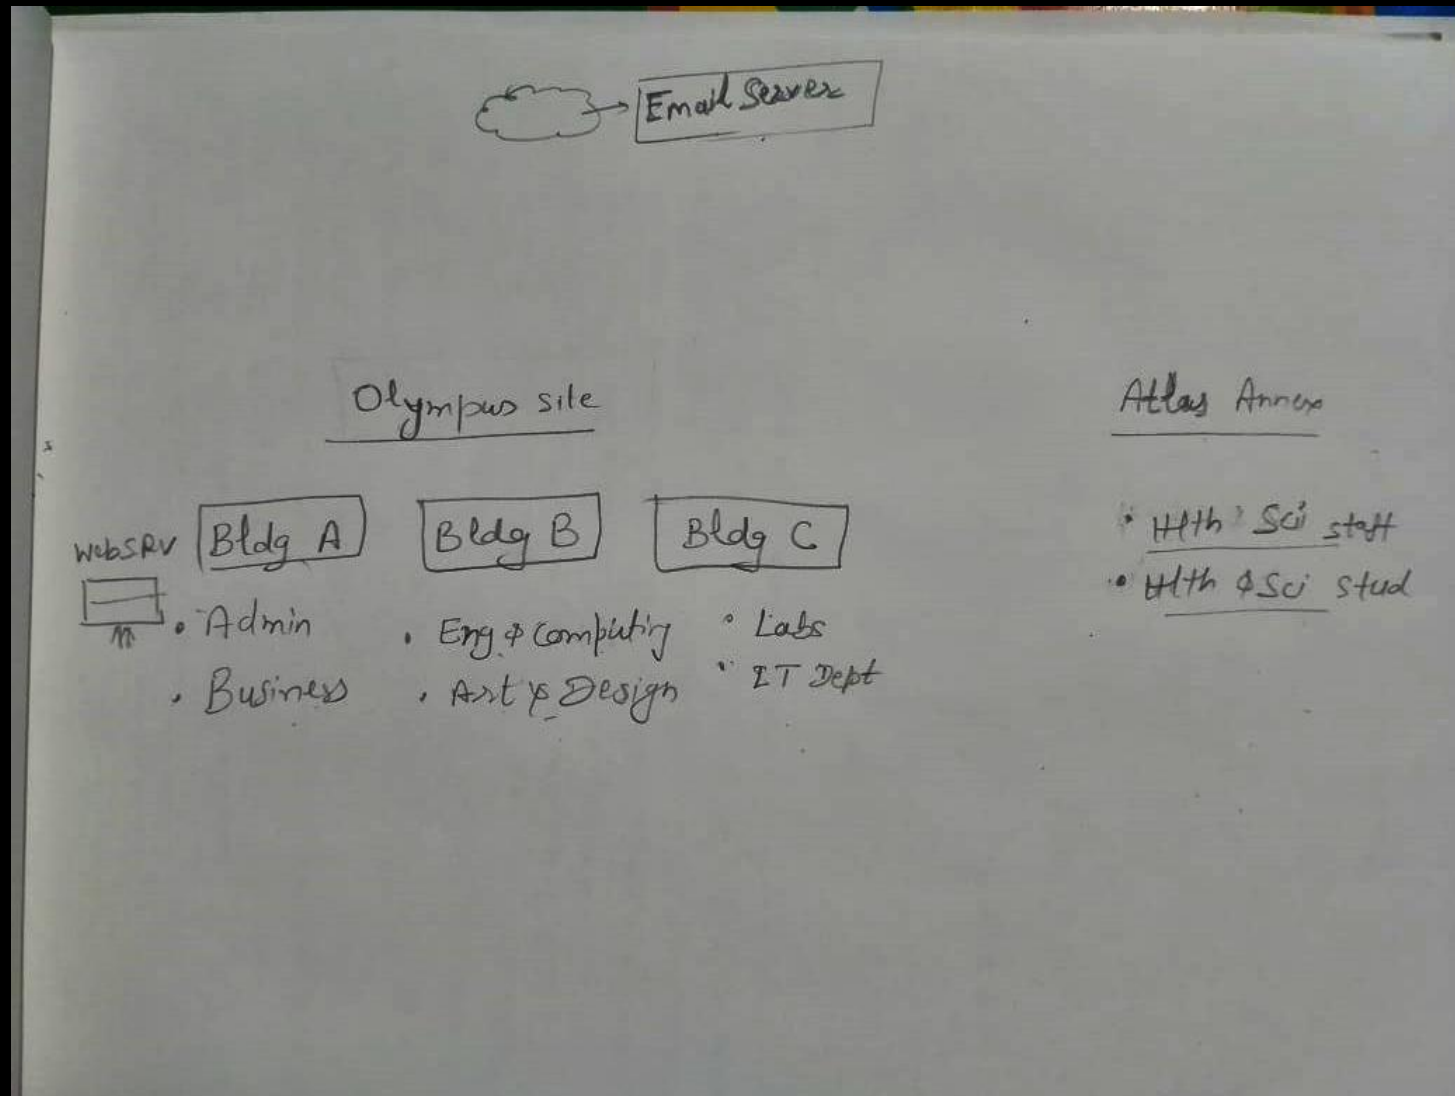 Email Server
Olympus site
Atlas Annex
WebSRV
Bldg A
Bldg B
Bldg C
• Admin
• Business
• Eng & Computing
• Art & Design
• Labs
• IT Dept
• Hlth & Sci staff
• Hlth & Sci stud